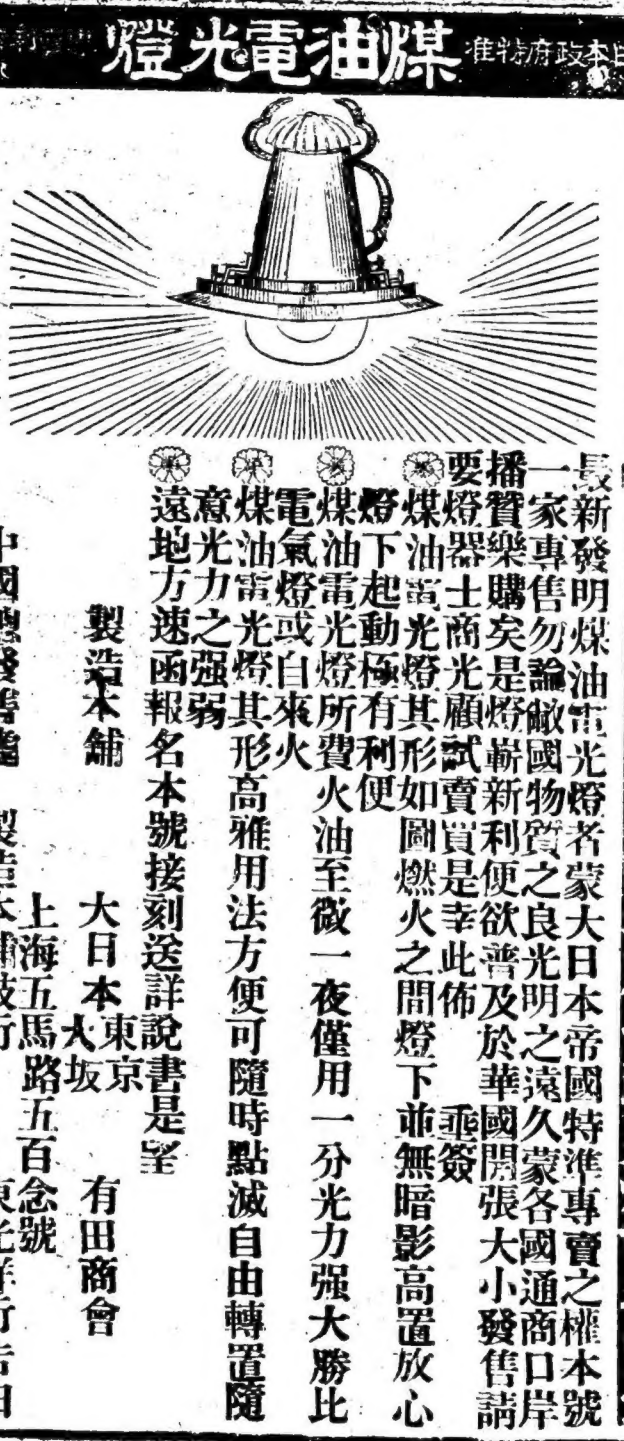 日本政府特准
煤油電光燈
最新發明煤油電光燈者蒙大日本帝國特準專賣之權本號
一家專售勿論敝國物質之良光明之遠久蒙各國通商口岸
播贊樂購矣是燈嶄新利便欲普及於華國開張大小發售請
要燈器士商光顧試賣買是幸此佈 乖簽
煤油電光燈其形如圖燃火之間燈下並無暗影高置放心
燈下起動極有利便
煤油電光燈所費火油至微一夜僅用一分光力强大勝比
電氣燈或自來火
煤油電光燈其形高雅用法方便可隨時點滅自由轉置隨
意光力之强弱
遠地方速函報名本號接刻送詳說書是望
製造本舖 大日本 東京 大坂 有田商會
上海五馬路五百念號
中國總發售處 製造本舖支行 東光洋行